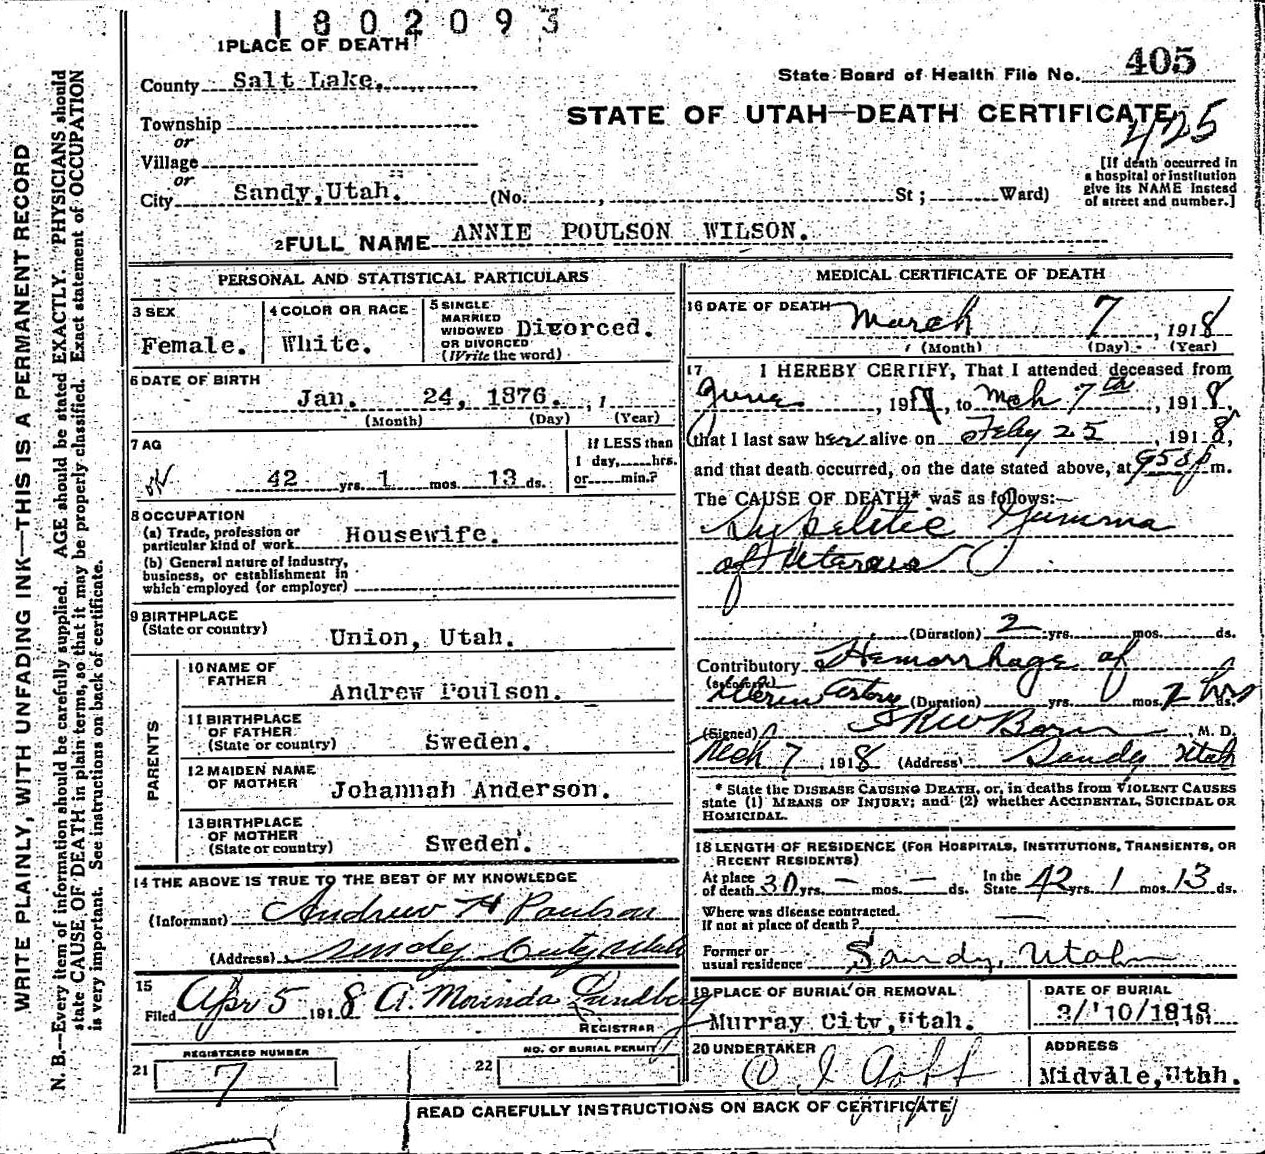 1802093
1 PLACE OF DEATH
County Salt Lake,
State Board of Health File No. 405
STATE OF UTAH—DEATH CERTIFICATE
425
Township
or
Village
or
City Sandy, Utah. (No. , St ; Ward)
[If death occurred in
a hospital or institution
give its NAME instead
of street and number.]
2 FULL NAME ANNIE POULSON WILSON.
PERSONAL AND STATISTICAL PARTICULARS
3 SEX
Female.
4 COLOR OR RACE
White.
5 SINGLE
MARRIED
WIDOWED
OR DIVORCED
(Write the word)
Divorced.
6 DATE OF BIRTH
Jan. 24, 1876. , 1
(Month) (Day) (Year)
7 AG
42 yrs. 1 mos. 13 ds.
If LESS than
1 day, hrs.
or min.?
8 OCCUPATION
(a) Trade, profession or
particular kind of work Housewife.
(b) General nature of industry,
business, or establishment in
which employed (or employer)
9 BIRTHPLACE
(State or country)
Union, Utah.
PARENTS
10 NAME OF
FATHER
Andrew Poulson.
11 BIRTHPLACE
OF FATHER
(State or country)
Sweden.
12 MAIDEN NAME
OF MOTHER
Johannah Anderson.
13 BIRTHPLACE
OF MOTHER
(State or country)
Sweden.
14 THE ABOVE IS TRUE TO THE BEST OF MY KNOWLEDGE
(Informant) Andrew H Poulson
(Address) Sandy City Utah
15
Filed Apr 5 1918 A. Morinda Lundberg
REGISTRAR
21 REGISTERED NUMBER
7
22 NO. OF BURIAL PERMIT
MEDICAL CERTIFICATE OF DEATH
16 DATE OF DEATH
March 7, 1918
(Month) (Day) (Year)
17 I HEREBY CERTIFY, That I attended deceased from
June, 191 , to Mch 7th, 1918,
that I last saw her alive on Feby 25, 1918,
and that death occurred, on the date stated above, at 958 p m.
The CAUSE OF DEATH* was as follows:—
Syphilitic Gumma
of Uterus
(Duration) 2 yrs. mos. ds.
Contributory Hemorrhage of
(SECONDARY)
Uterin Artery (Duration) yrs. mos. 2 hrs ds.
(Signed) , M. D.
Mch 7, 1918 (Address) Sandy Utah
* State the DISEASE CAUSING DEATH, or, in deaths from VIOLENT CAUSES
state (1) MEANS OF INJURY; and (2) whether ACCIDENTAL, SUICIDAL OR
HOMICIDAL.
18 LENGTH OF RESIDENCE (FOR HOSPITALS, INSTITUTIONS, TRANSIENTS, OR
RECENT RESIDENTS)
At place
of death 30 yrs. — mos. — ds.
In the
State 42 yrs. 1 mos. 13 ds.
Where was disease contracted.
If not at place of death? —
Former or
usual residence Sandy, Utah
19 PLACE OF BURIAL OR REMOVAL
Murray City, Utah.
DATE OF BURIAL
3/10/1918
20 UNDERTAKER
ADDRESS
Midvale, Uthh.
READ CAREFULLY INSTRUCTIONS ON BACK OF CERTIFICATE
WRITE PLAINLY, WITH UNFADING INK—THIS IS A PERMANENT RECORD
N. B.—Every item of information should be carefully supplied. AGE should be stated EXACTLY. PHYSICIANS should
state CAUSE OF DEATH in plain terms, so that it may be properly classified. Exact statement of OCCUPATION
is very important. See instructions on back of certificate.